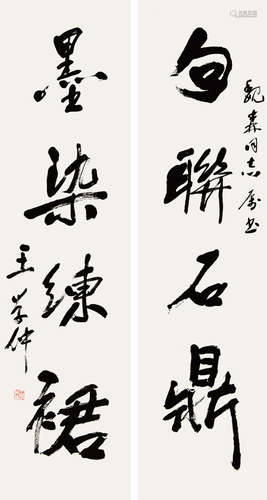 魏森同志属书
句联石鼎
墨染练裙
王学仲